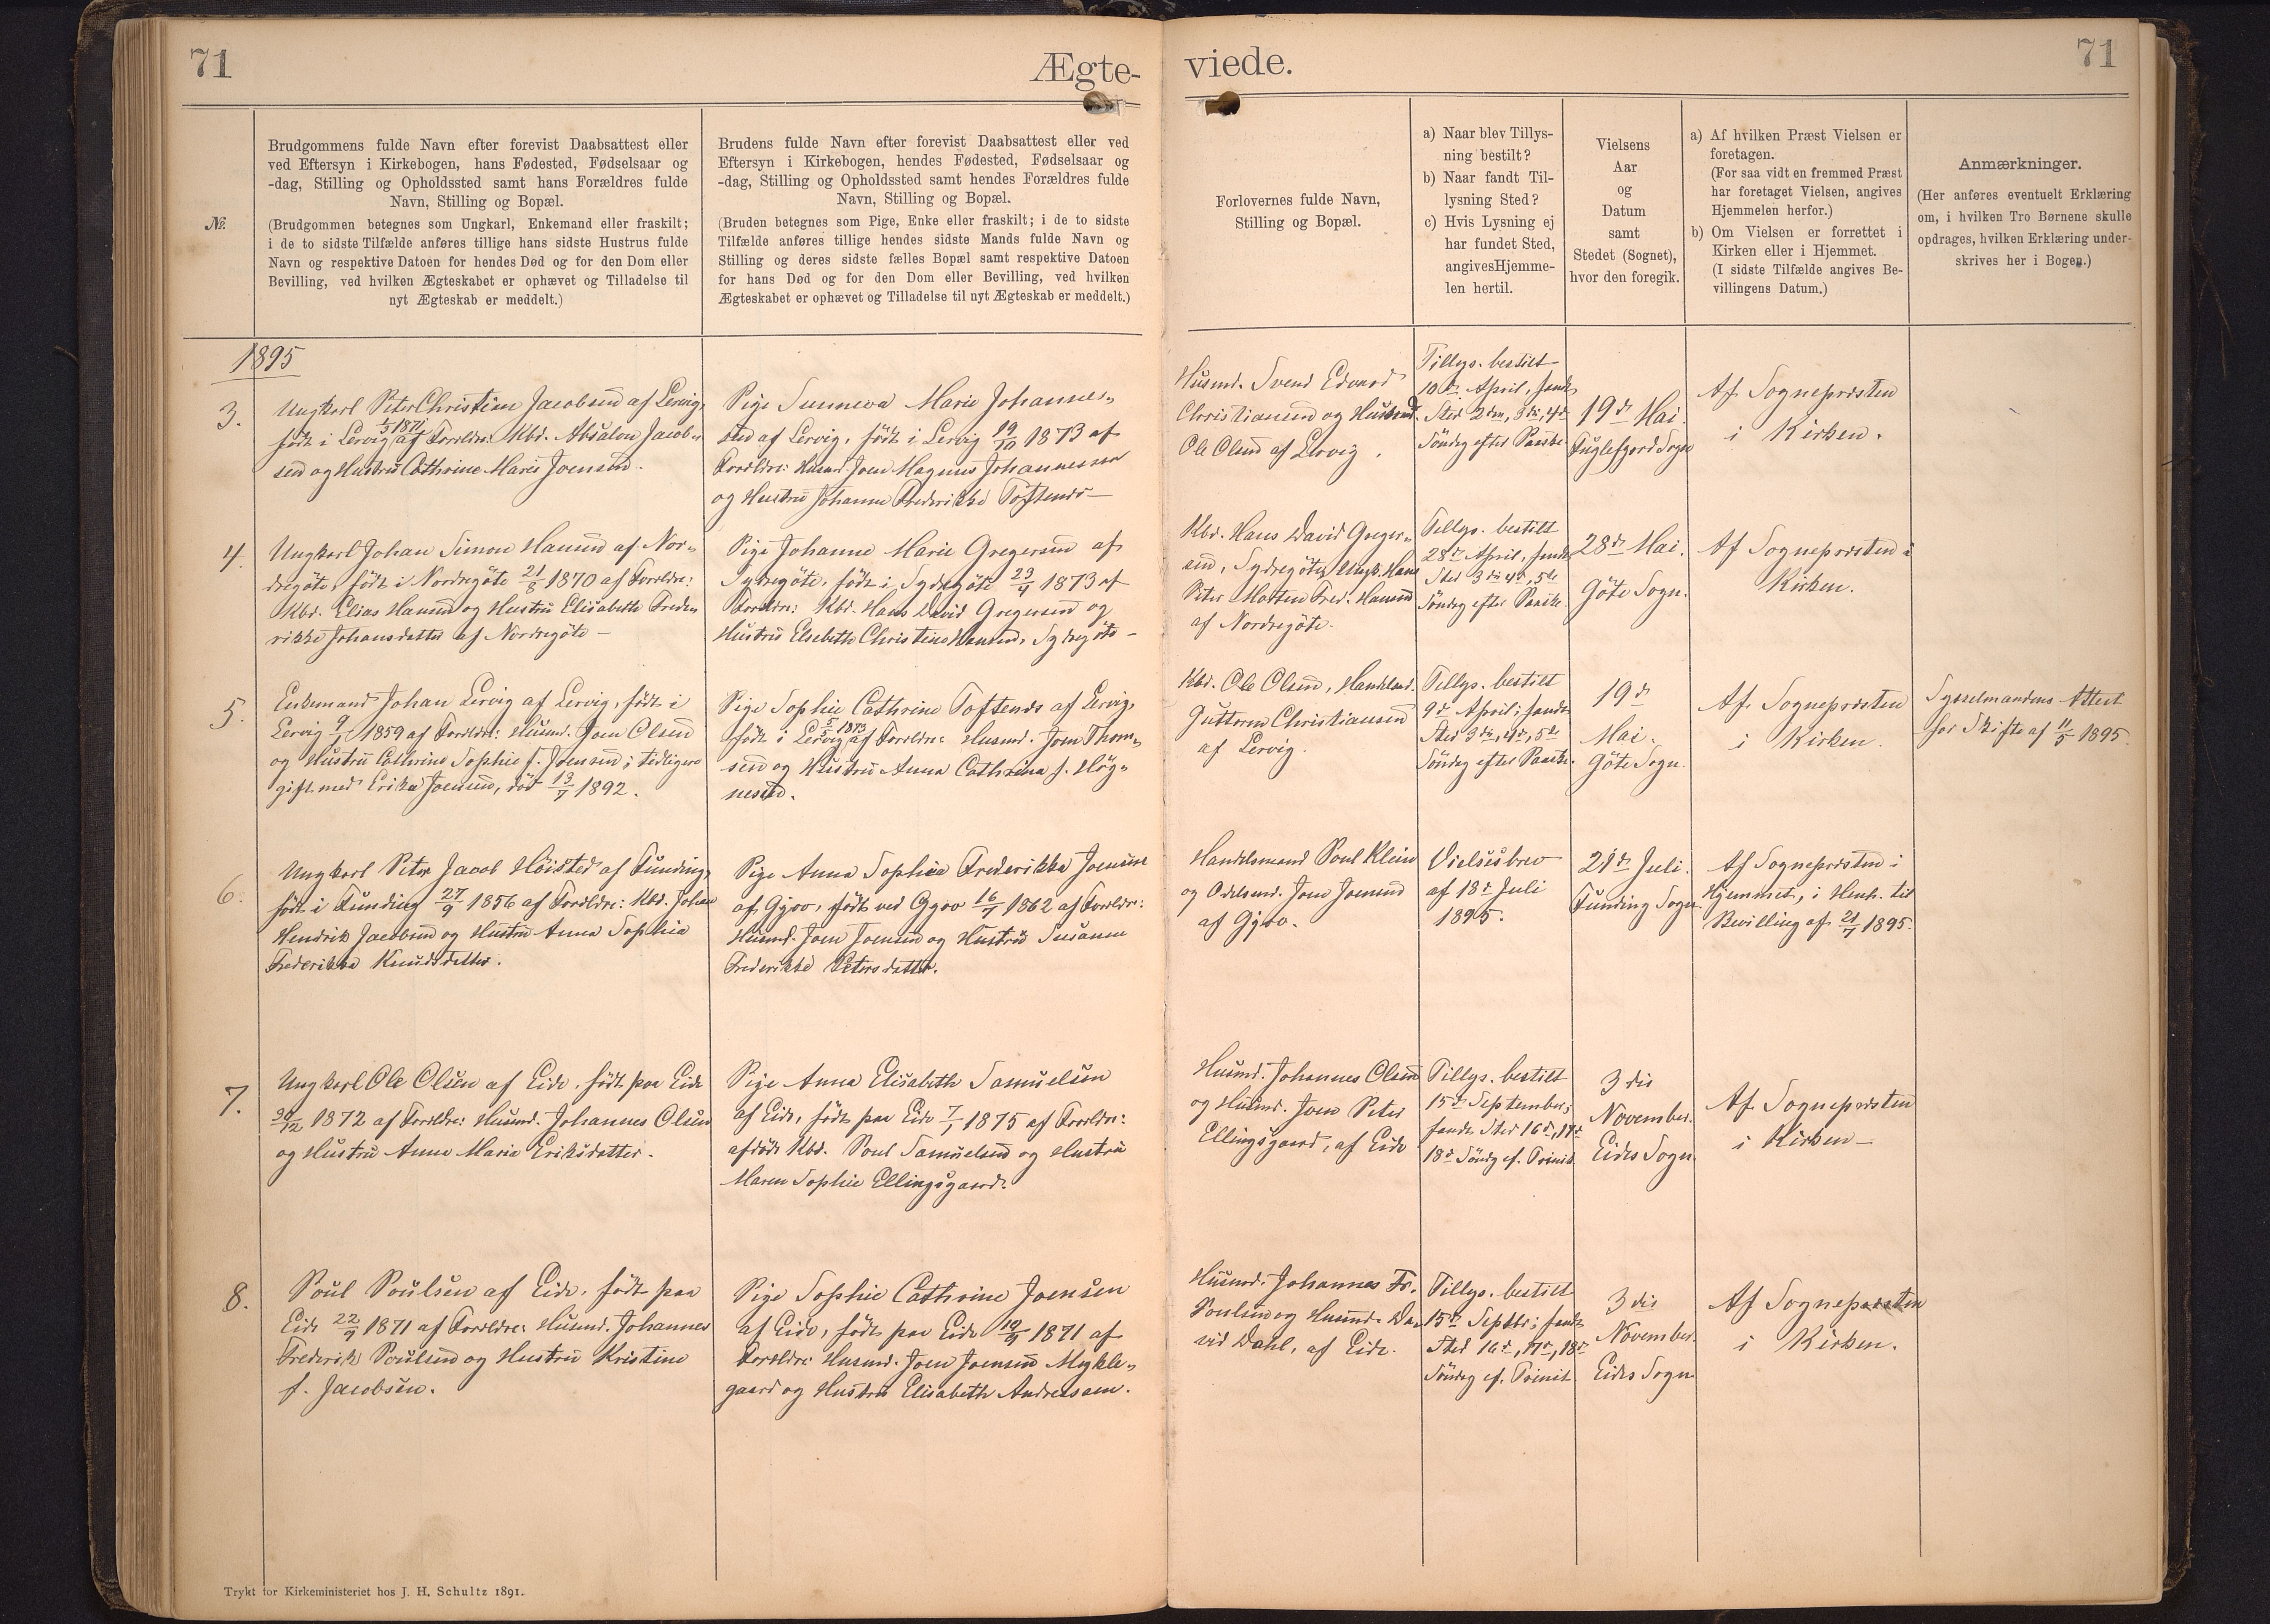 71
Ægte-
viede.
71
№.
Brudgommens fulde Navn efter forevist Daabsattest eller
ved Eftersyn i Kirkebogen, hans Fødested, Fødselsaar og
-dag, Stilling og Opholdssted samt hans Forældres fulde
Navn, Stilling og Bopæl.
(Brudgommen betegnes som Ungkarl, Enkemand eller fraskilt;
i de to sidste Tilfælde anføres tillige hans sidste Hustrus fulde
Navn og respektive Datoen for hendes Død og for den Dom eller
Bevilling, ved hvilken Ægteskabet er ophævet og Tilladelse til
nyt Ægteskab er meddelt.)
Brudens fulde Navn efter forevist Daabsattest eller ved
Eftersyn i Kirkebogen, hendes Fødested, Fødselsaar og
-dag, Stilling og Opholdssted samt hendes Forældres fulde
Navn, Stilling og Bopæl.
(Bruden betegnes som Pige, Enke eller fraskilt; i de to sidste
Tilfælde anføres tillige hendes sidste Mands fulde Navn og
Stilling og deres sidste fælles Bopæl samt respektive Datoen
for hans Død og for den Dom eller Bevilling, ved hvilken
Ægteskabet er ophævet og Tilladelse til nyt Ægteskab er meddelt.)
Forlovernes fulde Navn,
Stilling og Bopæl.
a) Naar blev Tillys-
ning bestilt?
b) Naar fandt Til-
lysning Sted?
c) Hvis Lysning ej
har fundet Sted,
angivesHjemme-
len hertil.
Vielsens
Aar
og
Datum
samt
Stedet (Sognet),
hvor den foregik.
a) Af hvilken Præst Vielsen er
foretagen.
(For saa vidt en fremmed Præst
har foretaget Vielsen, angives
Hjemmelen herfor.)
b) Om Vielsen er forrettet i
Kirken eller i Hjemmet.
(I sidste Tilfælde angives Be-
villingens Datum.)
Anmærkninger.
(Her anføres eventuelt Erklæring
om, i hvilken Tro Børnene skulle
opdrages, hvilken Erklæring under-
skrives her i Bogen.)
1895
3.
Ungkarl Peter Christian Jacobsen af Lervig,
født i Lervig 1/5 1871 af Forældre: Kbd. Absalon Jacob-
sen og Hustru Cathrine Marie Joensen.
Pige Sunneva Marie Johannes-
sen af Lervig, født i Lervig 19/10 1873 af
Forældre: Husmd. Joen Magnus Johannessen
og Hustru Johanne Frederikke Toftends—
Husmd. Svend Edvard
Christiansen og Husmd.
Ole Olsen af Lervig.
Tillys. bestilt
10de April, fandt
Sted 2den, 3die, 4de
Søndag efter Paaske
19de Mai.
Fuglefjord Sogn
Af Sognepræsten
i Kirken.
4.
Ungkarl Johan Simon Hansen af Nor-
dregöte, født i Nordregöte 21/8 1870 af Forældre:
Kbd. Elias Hansen og Hustru Elisabeth Frede-
rikke Johansdatter af Nordregöte—
Pige Johanne Marie Gregersen af
Sydregöte, født i Sydregöte 23/4 1873 af
Forældre: Kbd. Hans David Gregersen og
Hustru Elsebeth Christine Hansen, Sydregöte—
Kbd. Hans David Greger-
sen, Sydregöte, Ungk. Hans
Peter Morten Fred. Hansen
af Nordregöte.
Tillys. bestilt
28de April, fandt
Sted 3die 4de, 5te
Søndag efter Paaske.
28de Mai.
Göte Sogn.
Af Sognepræsten i
Kirken.
5.
Enkemand Johan Lervig af Lervig, født i
Lervig 9/1 1859 af Forældre: Husmd. Joen Olsen
og Hustru Cathrine Sophie f. Joensen; tidligere
gift med Erika Joensen, død 13/7 1892.
Pige Sophie Cathrine Toftends af Lervig,
født i Lervig 5/5 1873 af Forældre: Husmd. Joen Thom-
sen og Hustru Anna Cathrina f. Høg-
nesen.
Kbd. Ole Olsen, Handelsmd.
Guttorm Christiansen
af Lervig.
Tillys. bestilt
9de April; fandt
Sted 3die, 4de, 5te
Søndag efter Paaske.
19de
Mai.
Göte Sogn.
Af Sognepræsten
i Kirken.
Sysselmandens Attest
for Skifte af 11/5 1895.
6.
Ungkarl Peter Jacob Höisted af Funding,
født i Funding 27/9 1856 af Forældre: Kbd. Johan
Hendrik Jacobsen og Hustru Anna Sophia
Frederikka Knudsdatter.
Pige Anna Sophia Frederikka Joensen
af Gjov, født ved Gjov 16/7 1862 af Forældre:
Husmd. Joen Joensen og Hustru Susanne
Frederikke Petersdatter.
Handelsmand Poul Klein
og Odelsmd. Joen Joensen
af Gjov.
Vielsesbrev
af 18de Juli
1895.
21de Juli.
Funding Sogn
Af Sognepræsten i
Hjemmet, i Henh. til
Bevilling af 21/7 1895.
7.
Ungkarl Ole Olsen af Eide, født paa Eide
30/12 1872 af Forældre: Husmd. Johannes Olsen
og Hustru Anne Marie Eriksdatter.
Pige Anna Elisabeth Samuelsen
af Eide, født paa Eide 7/1 1875 af Forældre:
afdøde Kbd. Poul Samuelsen og Hustru
Maren Sophie Ellingsgaard.
Husmd. Johannes Olsen
og Husmd. Joen Peter
Ellingsgaard, af Eide
Tillys. bestilt
15de September;
fandt Sted 16de, 17de
18de Søndg ef. Trinit.
3die
November.
Eides Sogn.
Af Sognepræsten
i Kirken—
8.
Poul Poulsen af Eide, født paa
Eide 22/9 1871 af Forældre: Husmd. Johannes
Frederik Poulsen og Hustru Kristine
f. Jacobsen.
Pige Sophie Cathrine Joensen
af Eide, født paa Eide 19/9 1871 af
Forældre: Husmd. Joen Joensen Mykle-
gaard og Hustru Elisabeth Andreasen.
Husmd. Johannes Fr.
Poulsen og Husmd. Da-
vid Dahl, af Eide.
Tillys. bestilt
15de Septbr; fandt
Sted 16de, 17de, 18de
Søndag ef. Trinit
3die
November.
Eides Sogn
Af Sognepræsten
i Kirken.
Trykt for Kirkeministeriet hos J. H. Schultz 1891.